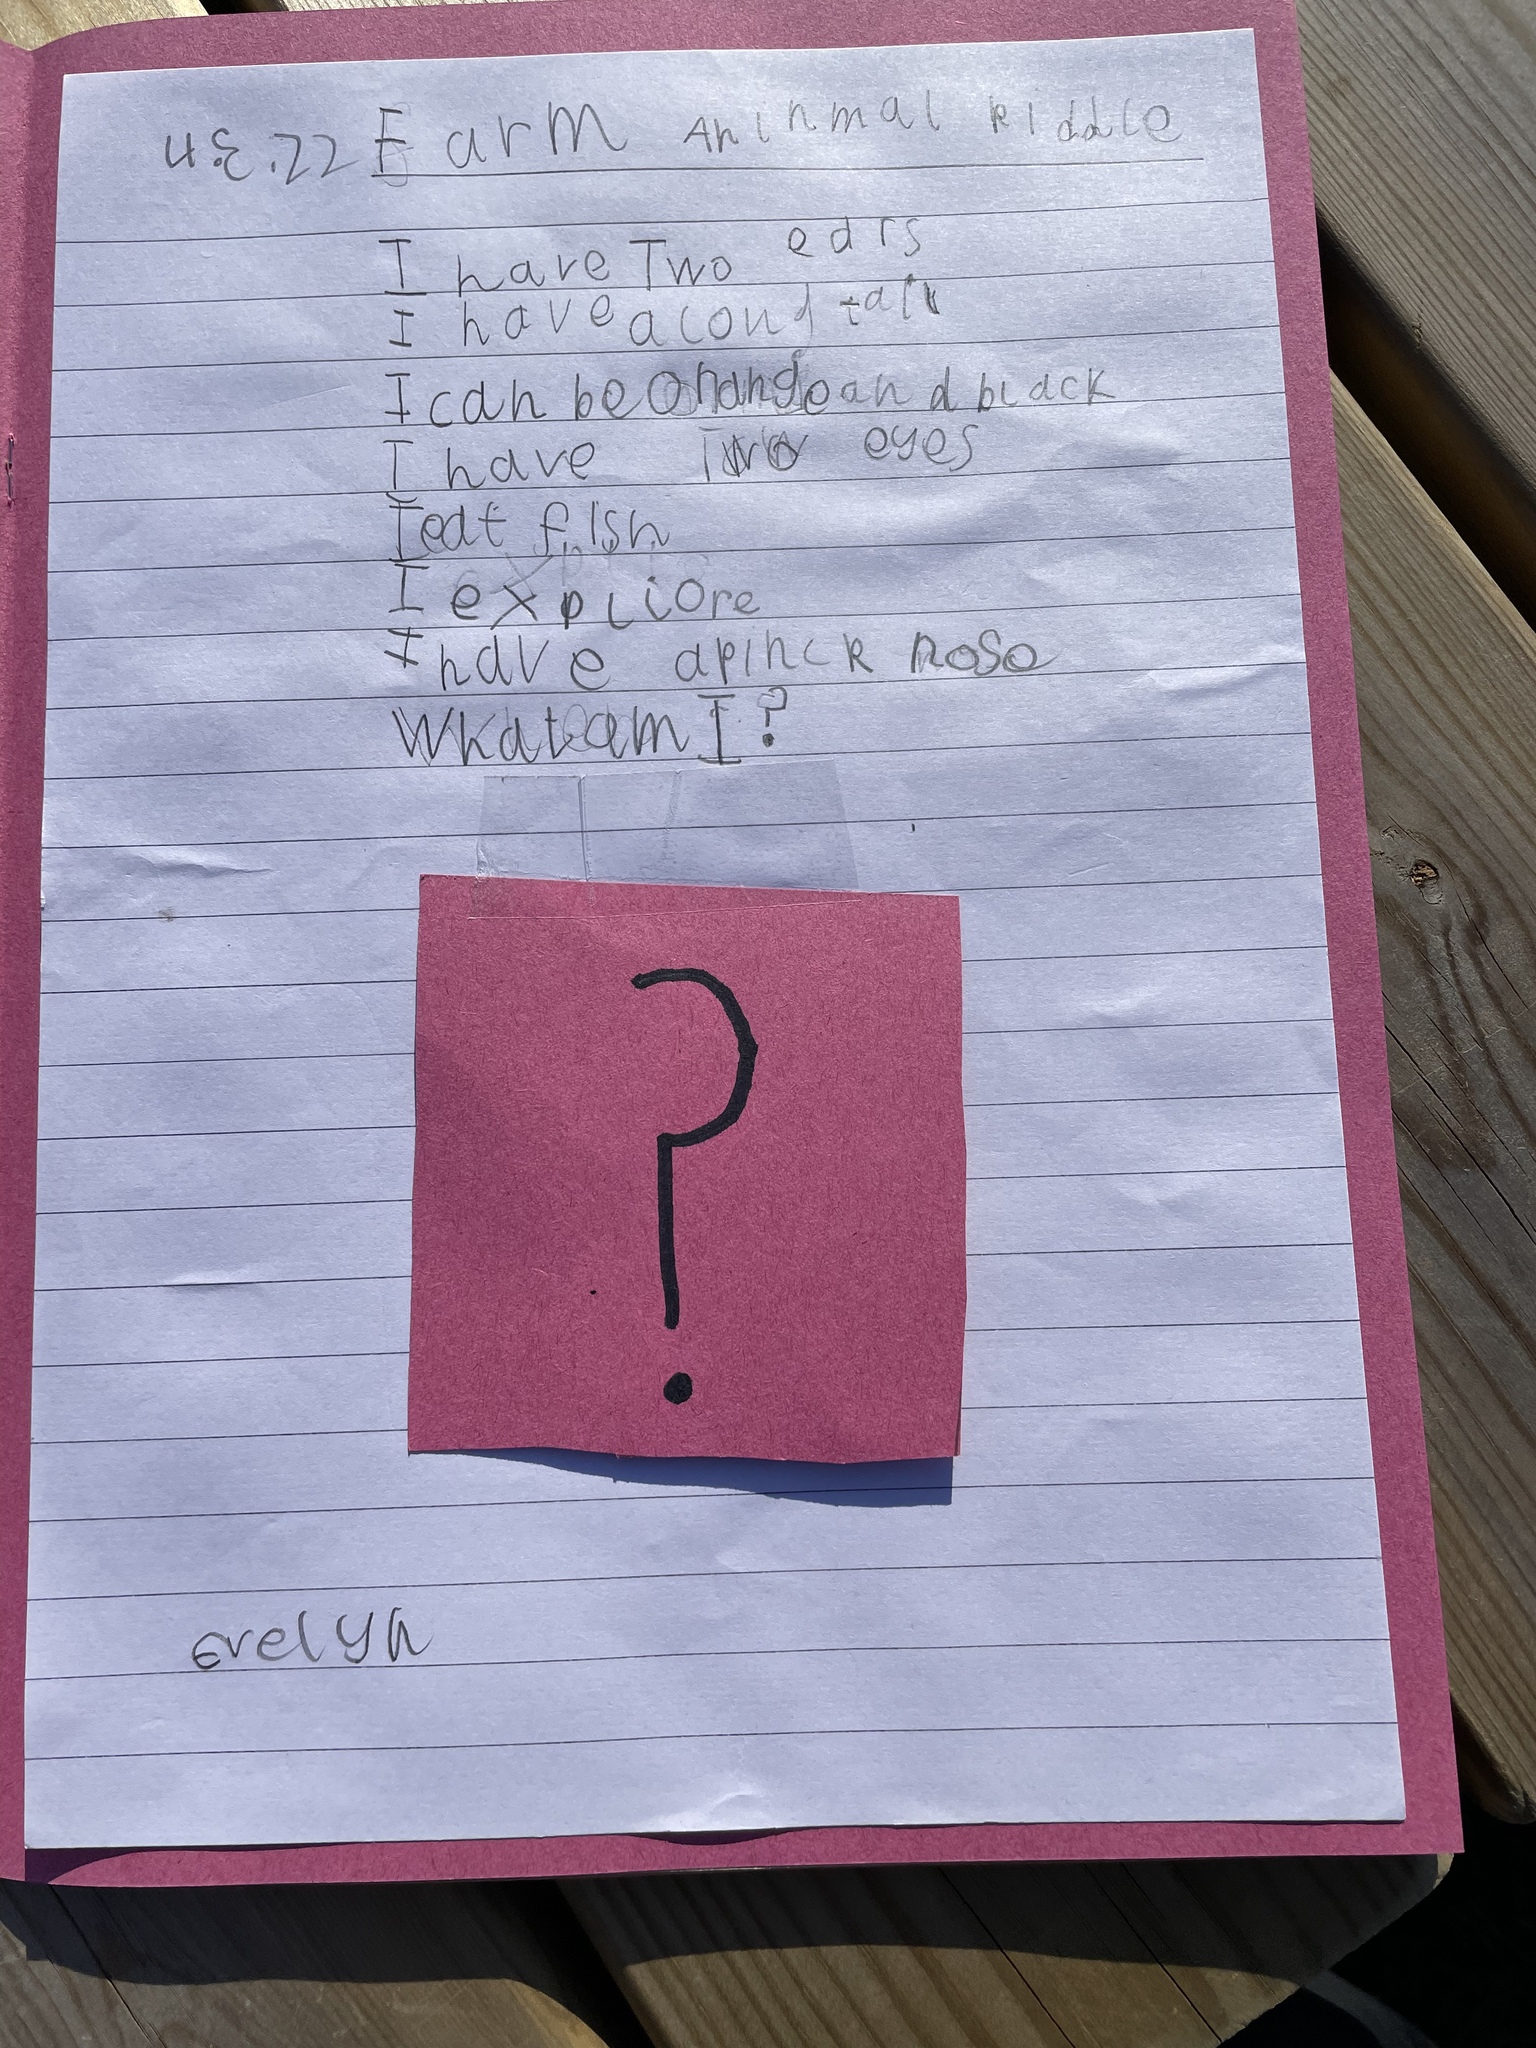 4.3.22 Farm Aninmal Riddle
I have Two ears
I have a tail
I can be orange and black
I have Two eyes
I eat fish
I expliore
I have a pinck nose
Wkat am I?
?
evelyn